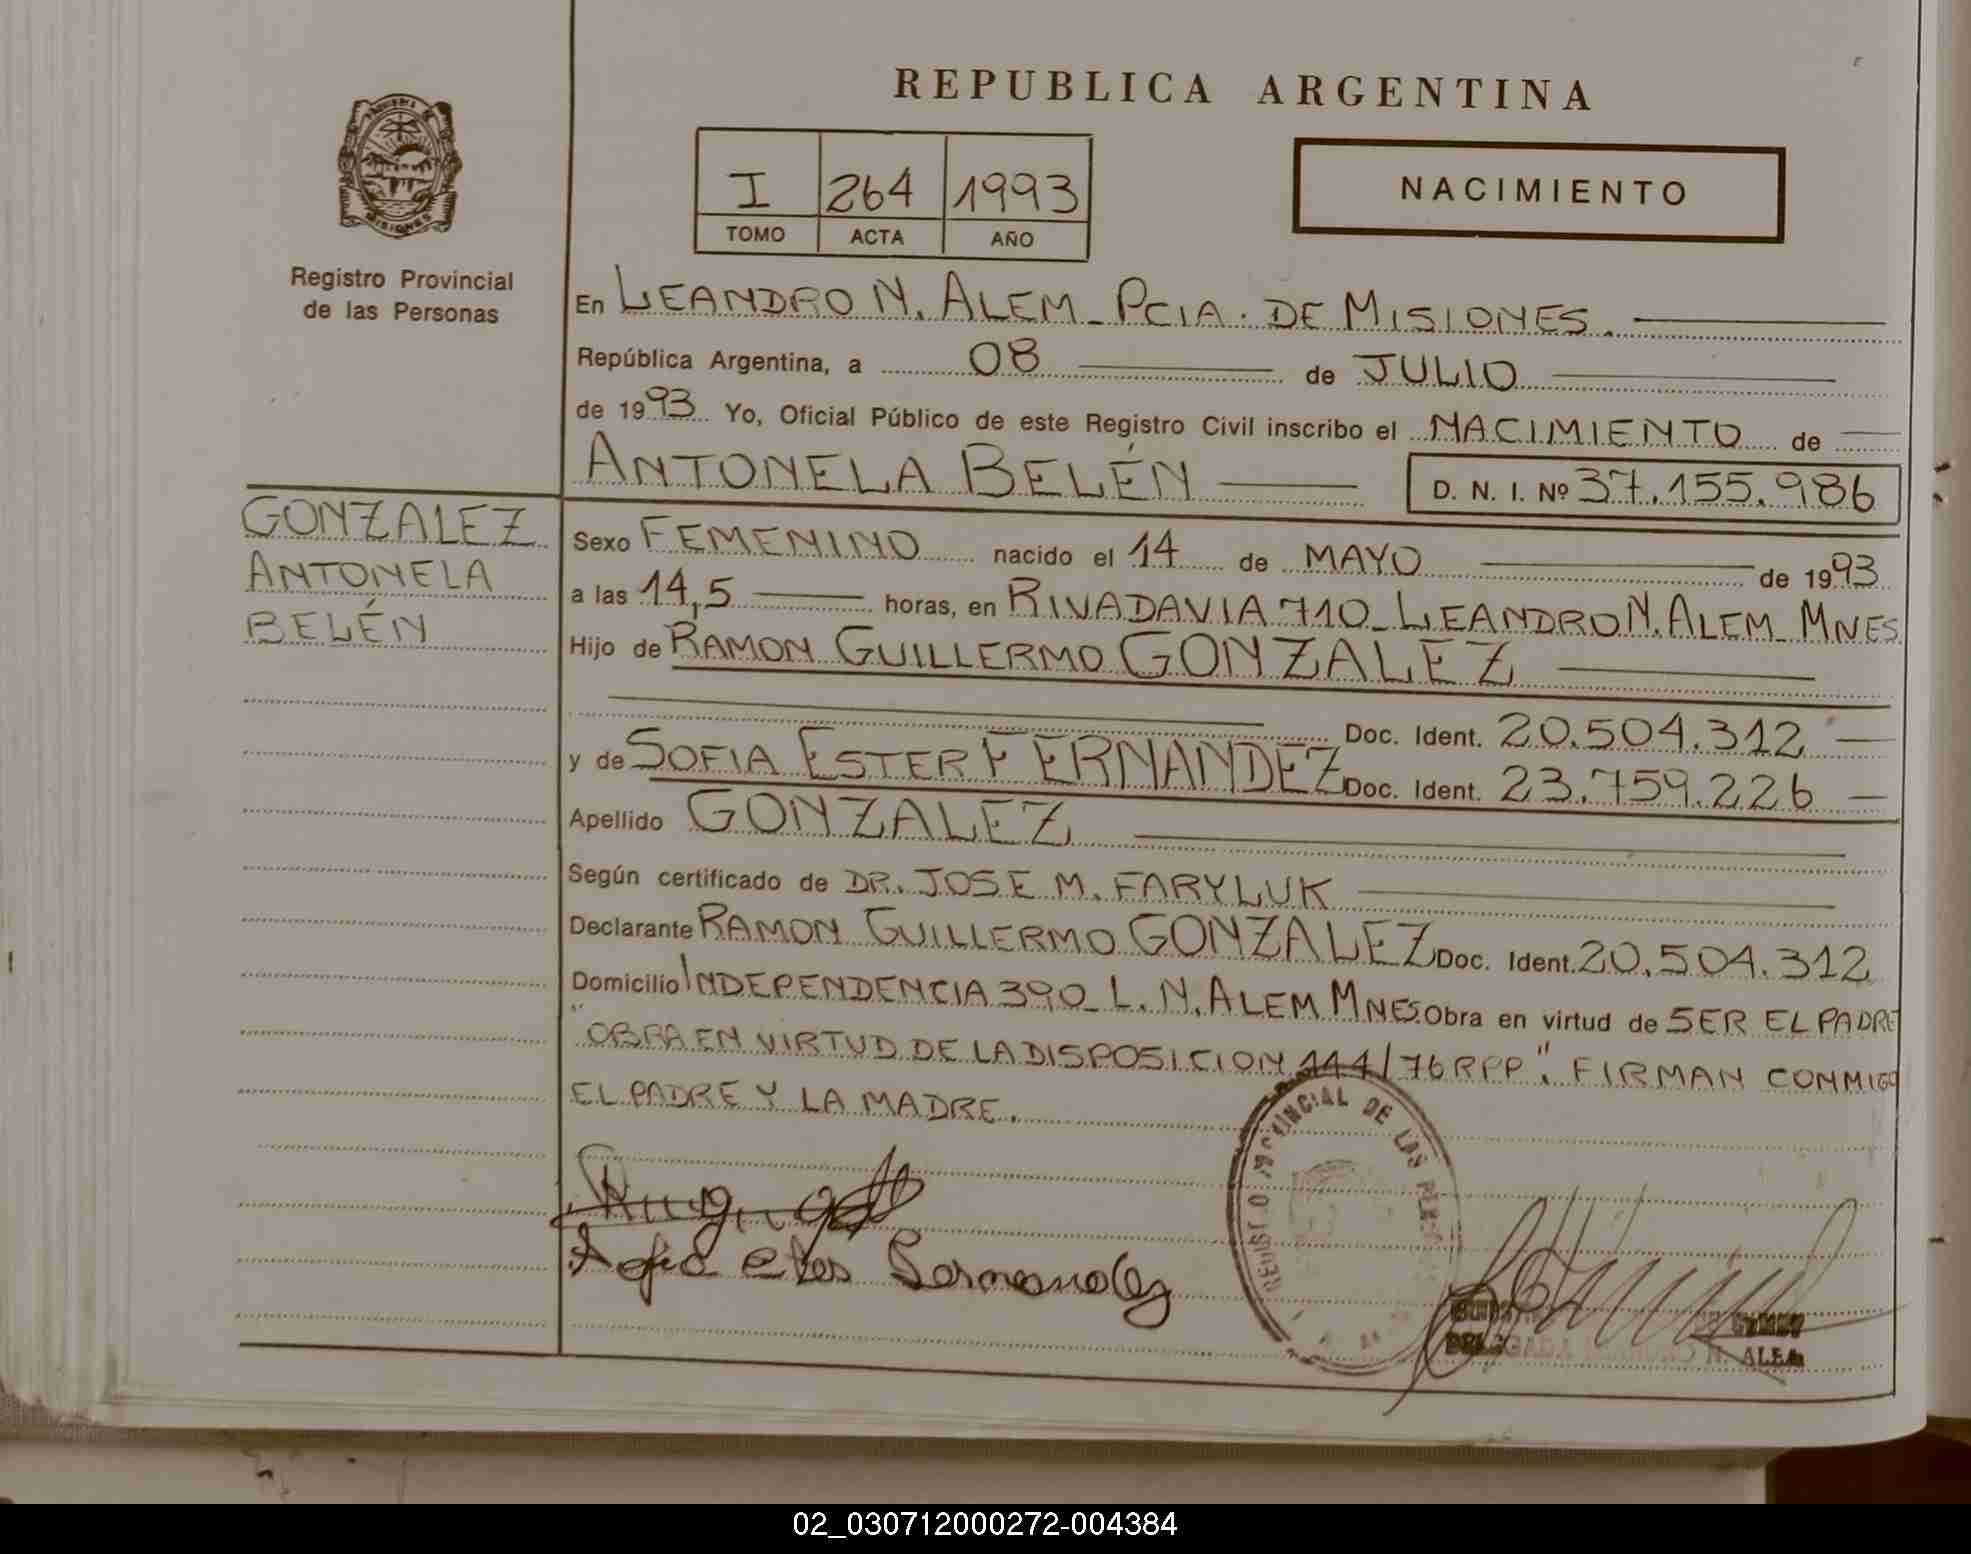 REPUBLICA ARGENTINA
I 264 1993
TOMO ACTA AÑO
NACIMIENTO
Registro Provincial
de las Personas
En LEANDRO N. ALEM - PCIA. DE MISIONES.
República Argentina, a 08 de JULIO
de 1993 Yo, Oficial Público de este Registro Civil inscribo el NACIMIENTO de
ANTONELA BELÉN D. N. I. Nº 37.155.986
GONZALEZ
ANTONELA
BELÉN
Sexo FEMENINO nacido el 14 de MAYO de 1993
a las 14,5 horas, en RIVADAVIA 710 - LEANDRO N. ALEM - MNES
Hijo de RAMON GUILLERMO GONZALEZ
Doc. Ident. 20.504.312
y de SOFIA ESTER FERNANDEZ Doc. Ident. 23.759.226
Apellido GONZALEZ
Según certificado de DR. JOSE M. FARYLUK
Declarante RAMON GUILLERMO GONZALEZ Doc. Ident. 20.504.312
Domicilio INDEPENDENCIA 390 - L. N. ALEM MNES. Obra en virtud de SER EL PADRE
"OBRA EN VIRTUD DE LA DISPOSICION 144/76 RPP". FIRMAN CONMIGO
EL PADRE Y LA MADRE.
REGISTRO PROVINCIAL DE LAS
N. ALEM
02_030712000272-004384